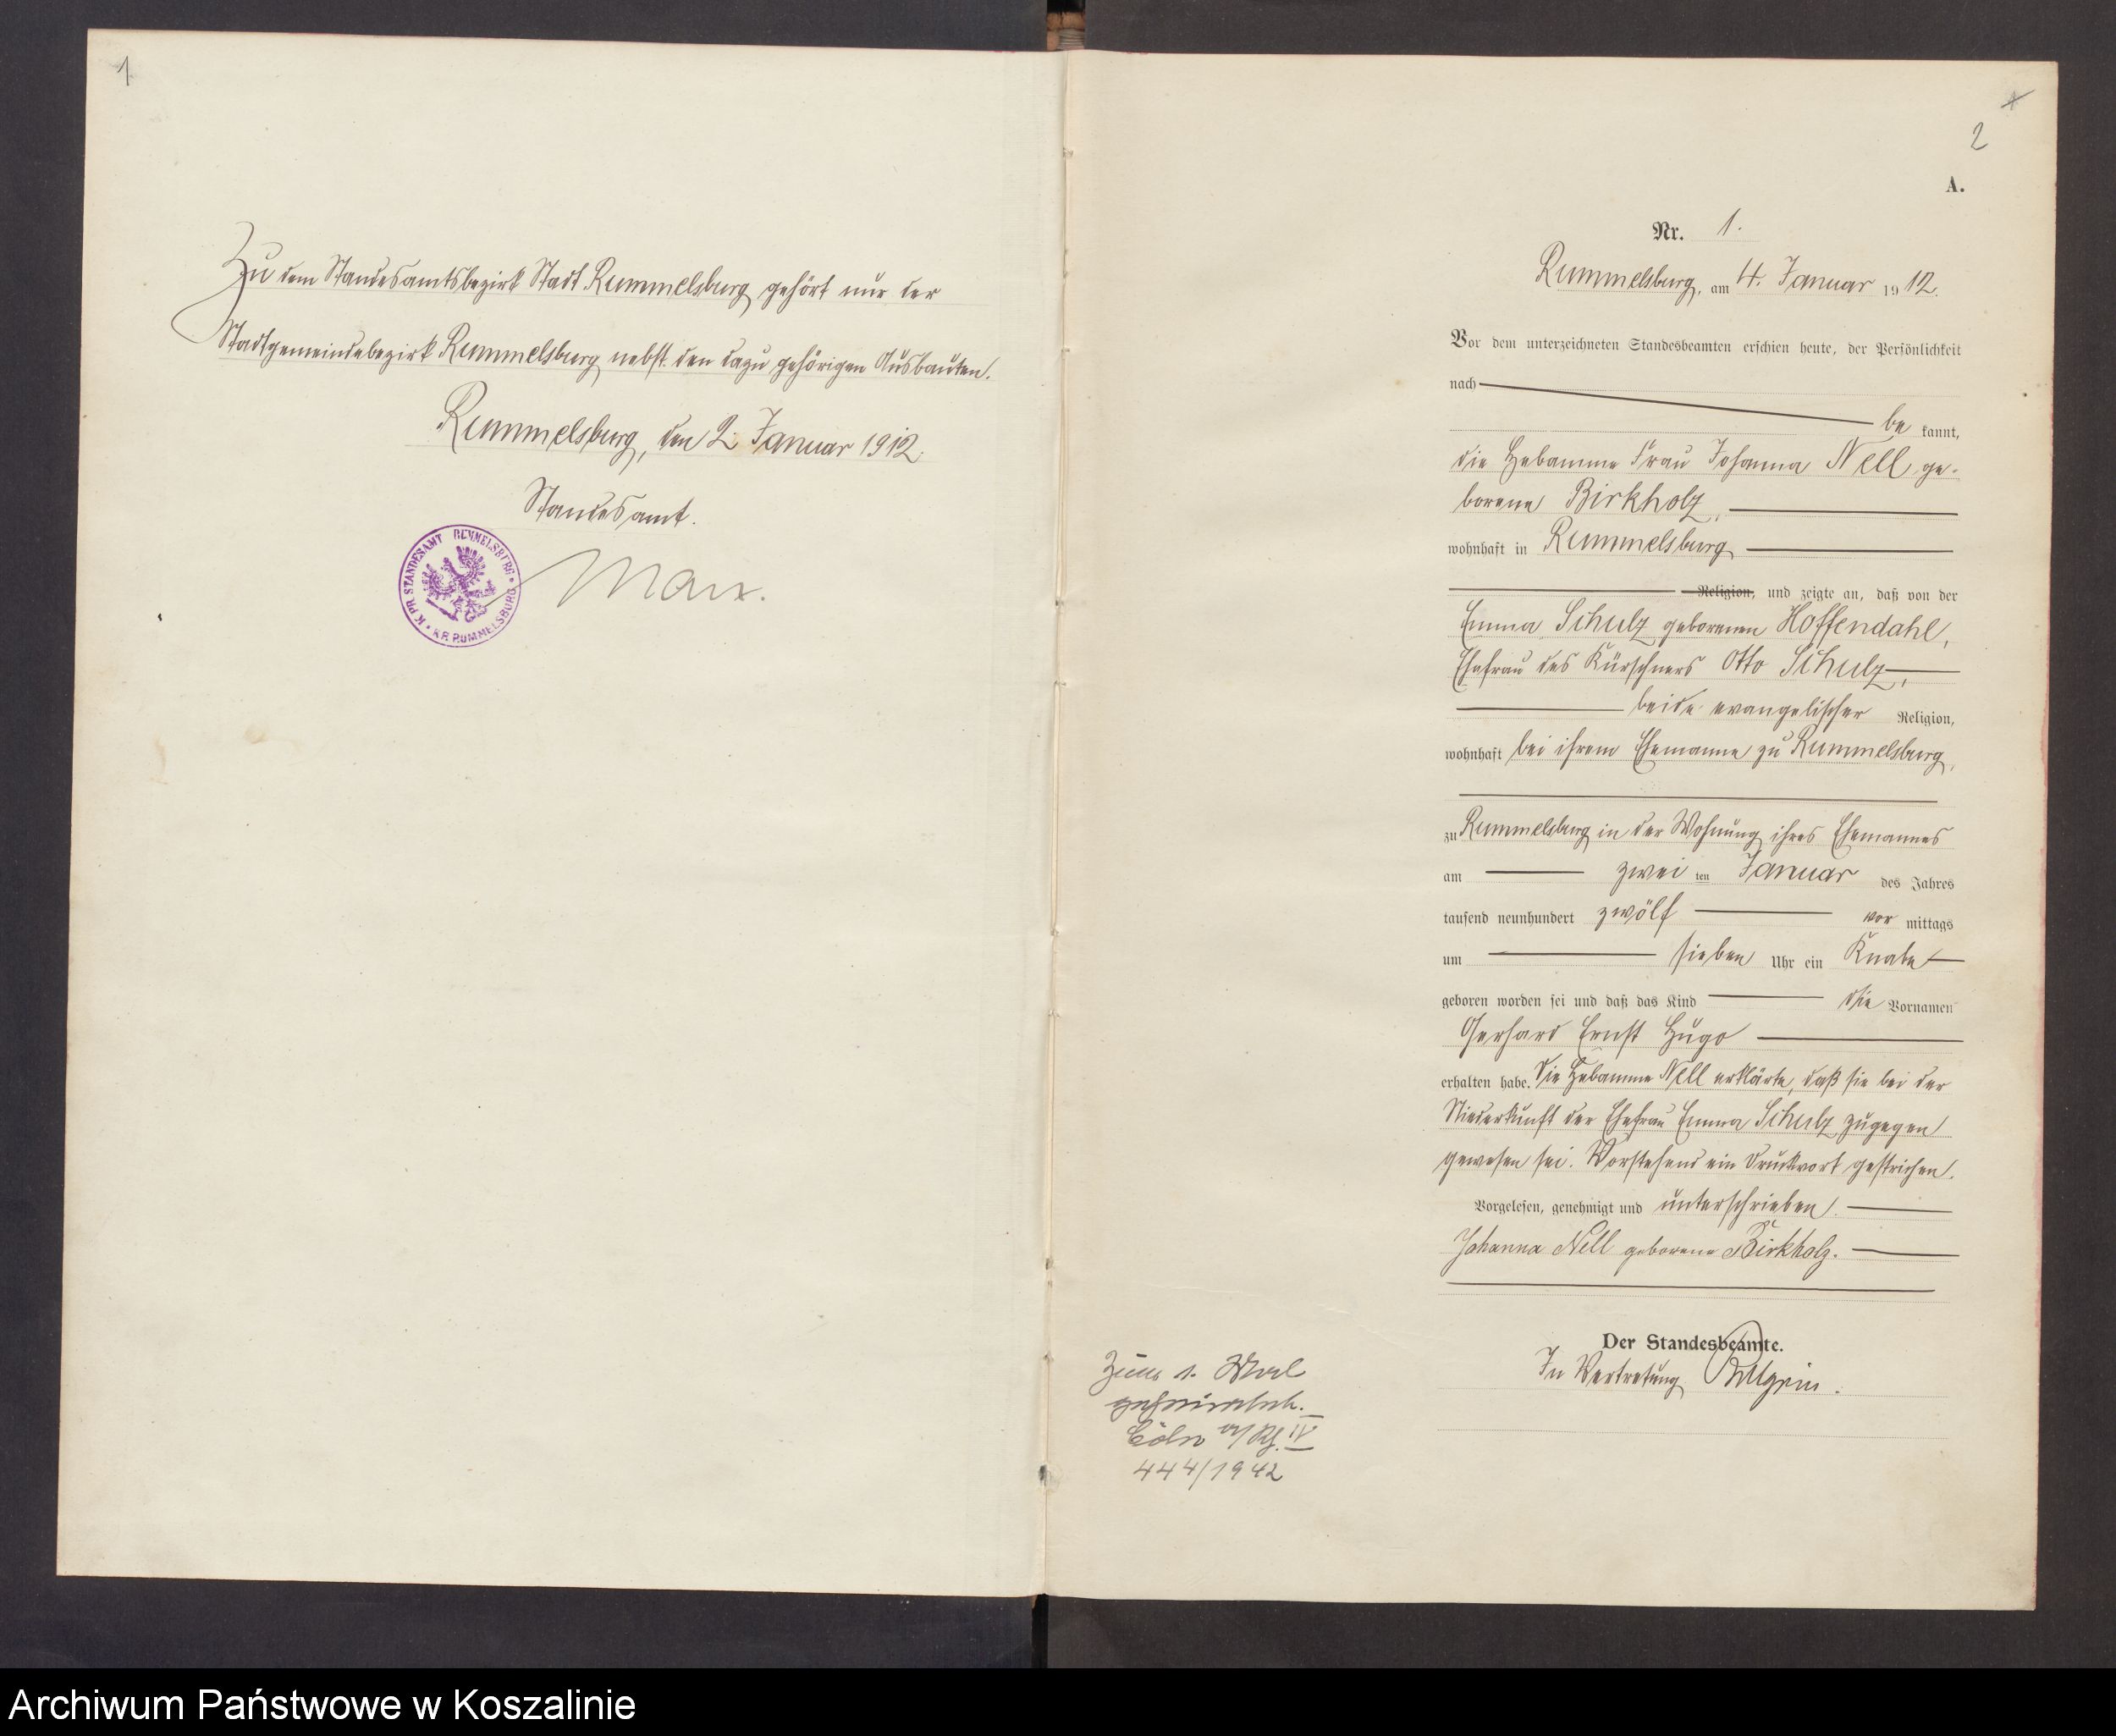 1
Zu dem Standesamtsbezirk Stadt Rummelsburg gehört nur der
Stadtgemeindebezirk Rummelsburg nebst den dazu gehörigen Ausbauten.
Rummelsburg, den 2. Januar 1912.
Standesamt.
K. PR. STANDESAMT RUMMELSBURG
KR. RUMMELSBURG
2
A.
Nr. 1.
Rummelsburg, am 4. Januar 1912.
Vor dem unterzeichneten Standesbeamten erschien heute, der Persönlichkeit
nach
be kannt,
die Hebamme Frau Johanna Nell ge-
borene Birkholz,
wohnhaft in Rummelsburg
Religion, und zeigte an, daß von der
Emma Schulz geborenen Hoffendahl,
Ehefrau des Kürschners Otto Schulz,
beide evangelischer Religion,
wohnhaft bei ihrem Ehemanne zu Rummelsburg,
zu Rummelsburg in der Wohnung ihres Ehemannes
am zwei ten Januar des Jahres
tausend neunhundert zwölf vor mittags
um sieben Uhr ein Knabe
geboren worden sei und daß das Kind die Vornamen
Gerhard Ernst Hugo
erhalten habe. Die Hebamme Nell erklärte, daß sie bei der
Niederkunft der Ehefrau Emma Schulz zugegen
gewesen sei. Vorstehend ein Druckwort gestrichen.
Vorgelesen, genehmigt und unterschrieben.
Johanna Nell geborene Birkholz.
Der Standesbeamte.
In Vertretung
Zum 1. Mal
geheiratet.
Cöln a/Rh. IV
444/1942
Archiwum Państwowe w Koszalinie